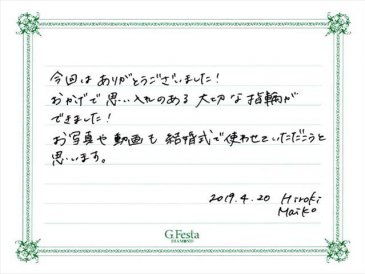 今回は ありがとうございました！
おかげで 思い入れのある 大切な 指輪が
できました！
お写真や動画も 結婚式で使わせていただこうと
思います。
2019.4.20 Hiroki
Maiko
G.Festa
DIAMOND